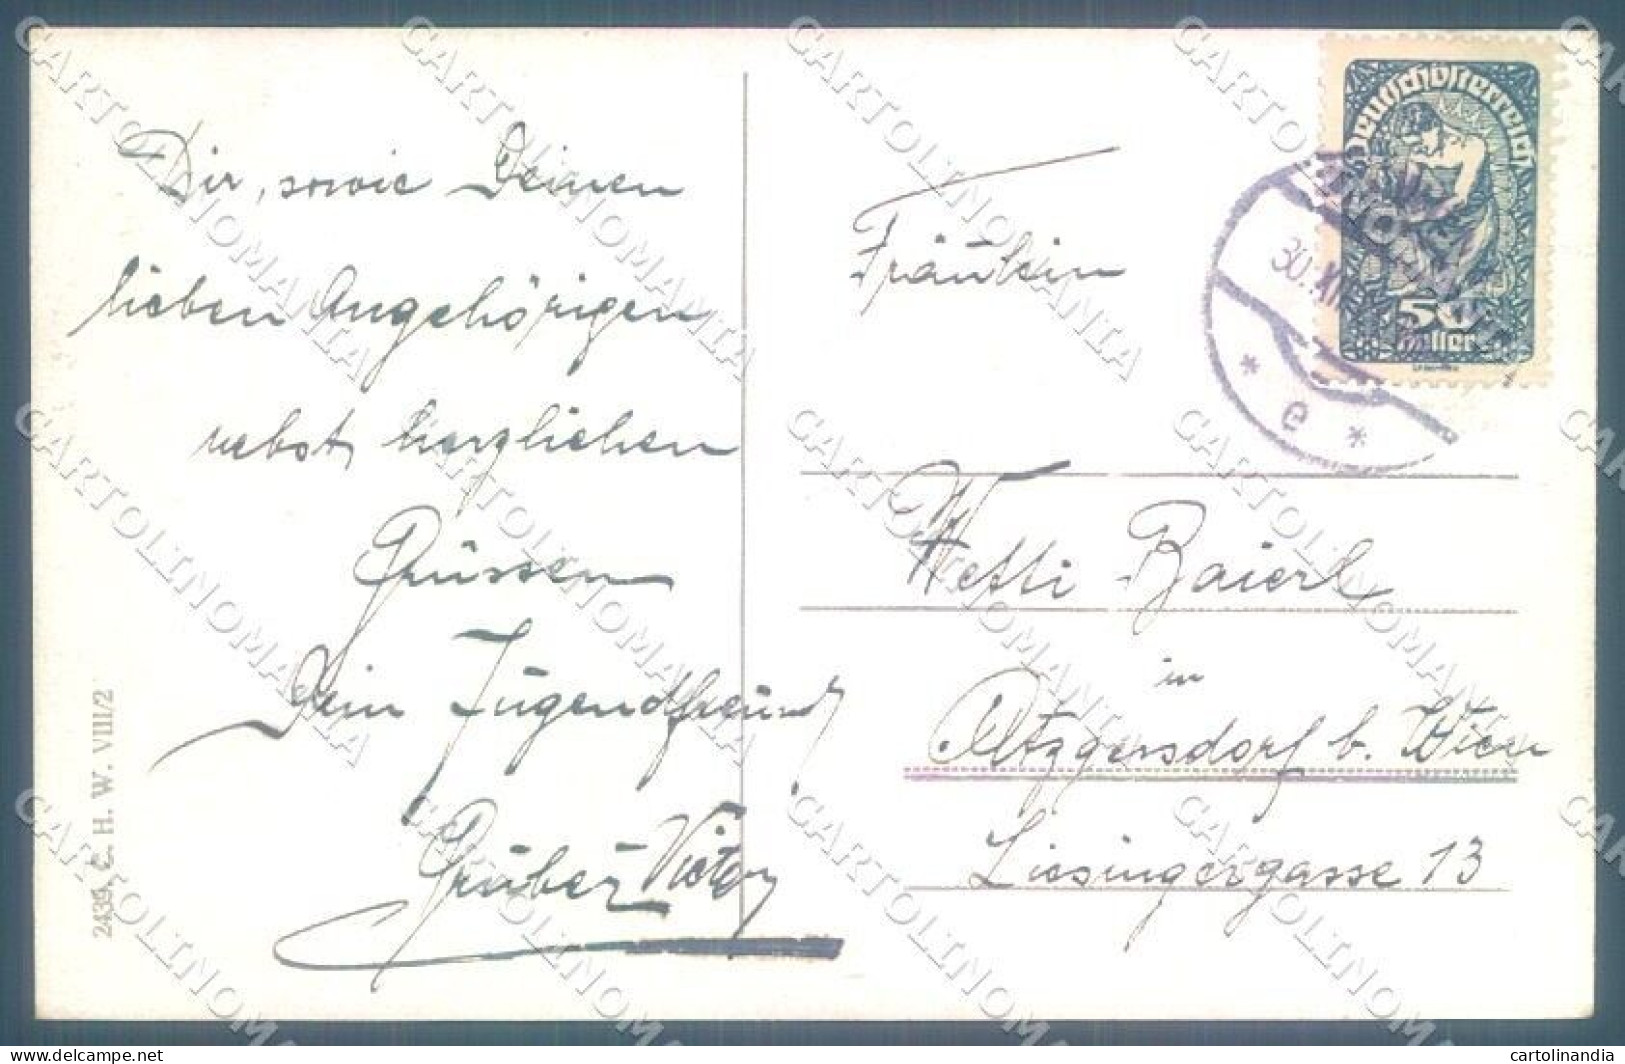 Dir, sowie Deinen
lieben Angehörigen
nebst herzlichen
Grüssen
Dein Jugendfreund
Gruber Victor
2439, C. H. W. VIII/2
Deutschösterreich
50
Heller
30. XII
* e *
Fräulein
Netti Baierl
in
Atzgersdorf b. Wien
Liesingergasse 13
CARTOLINOMANIA
cartolinomania.com
cartolinandia